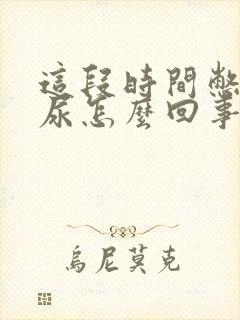 這段時間憋
尿怎麼回事
烏尼莫克